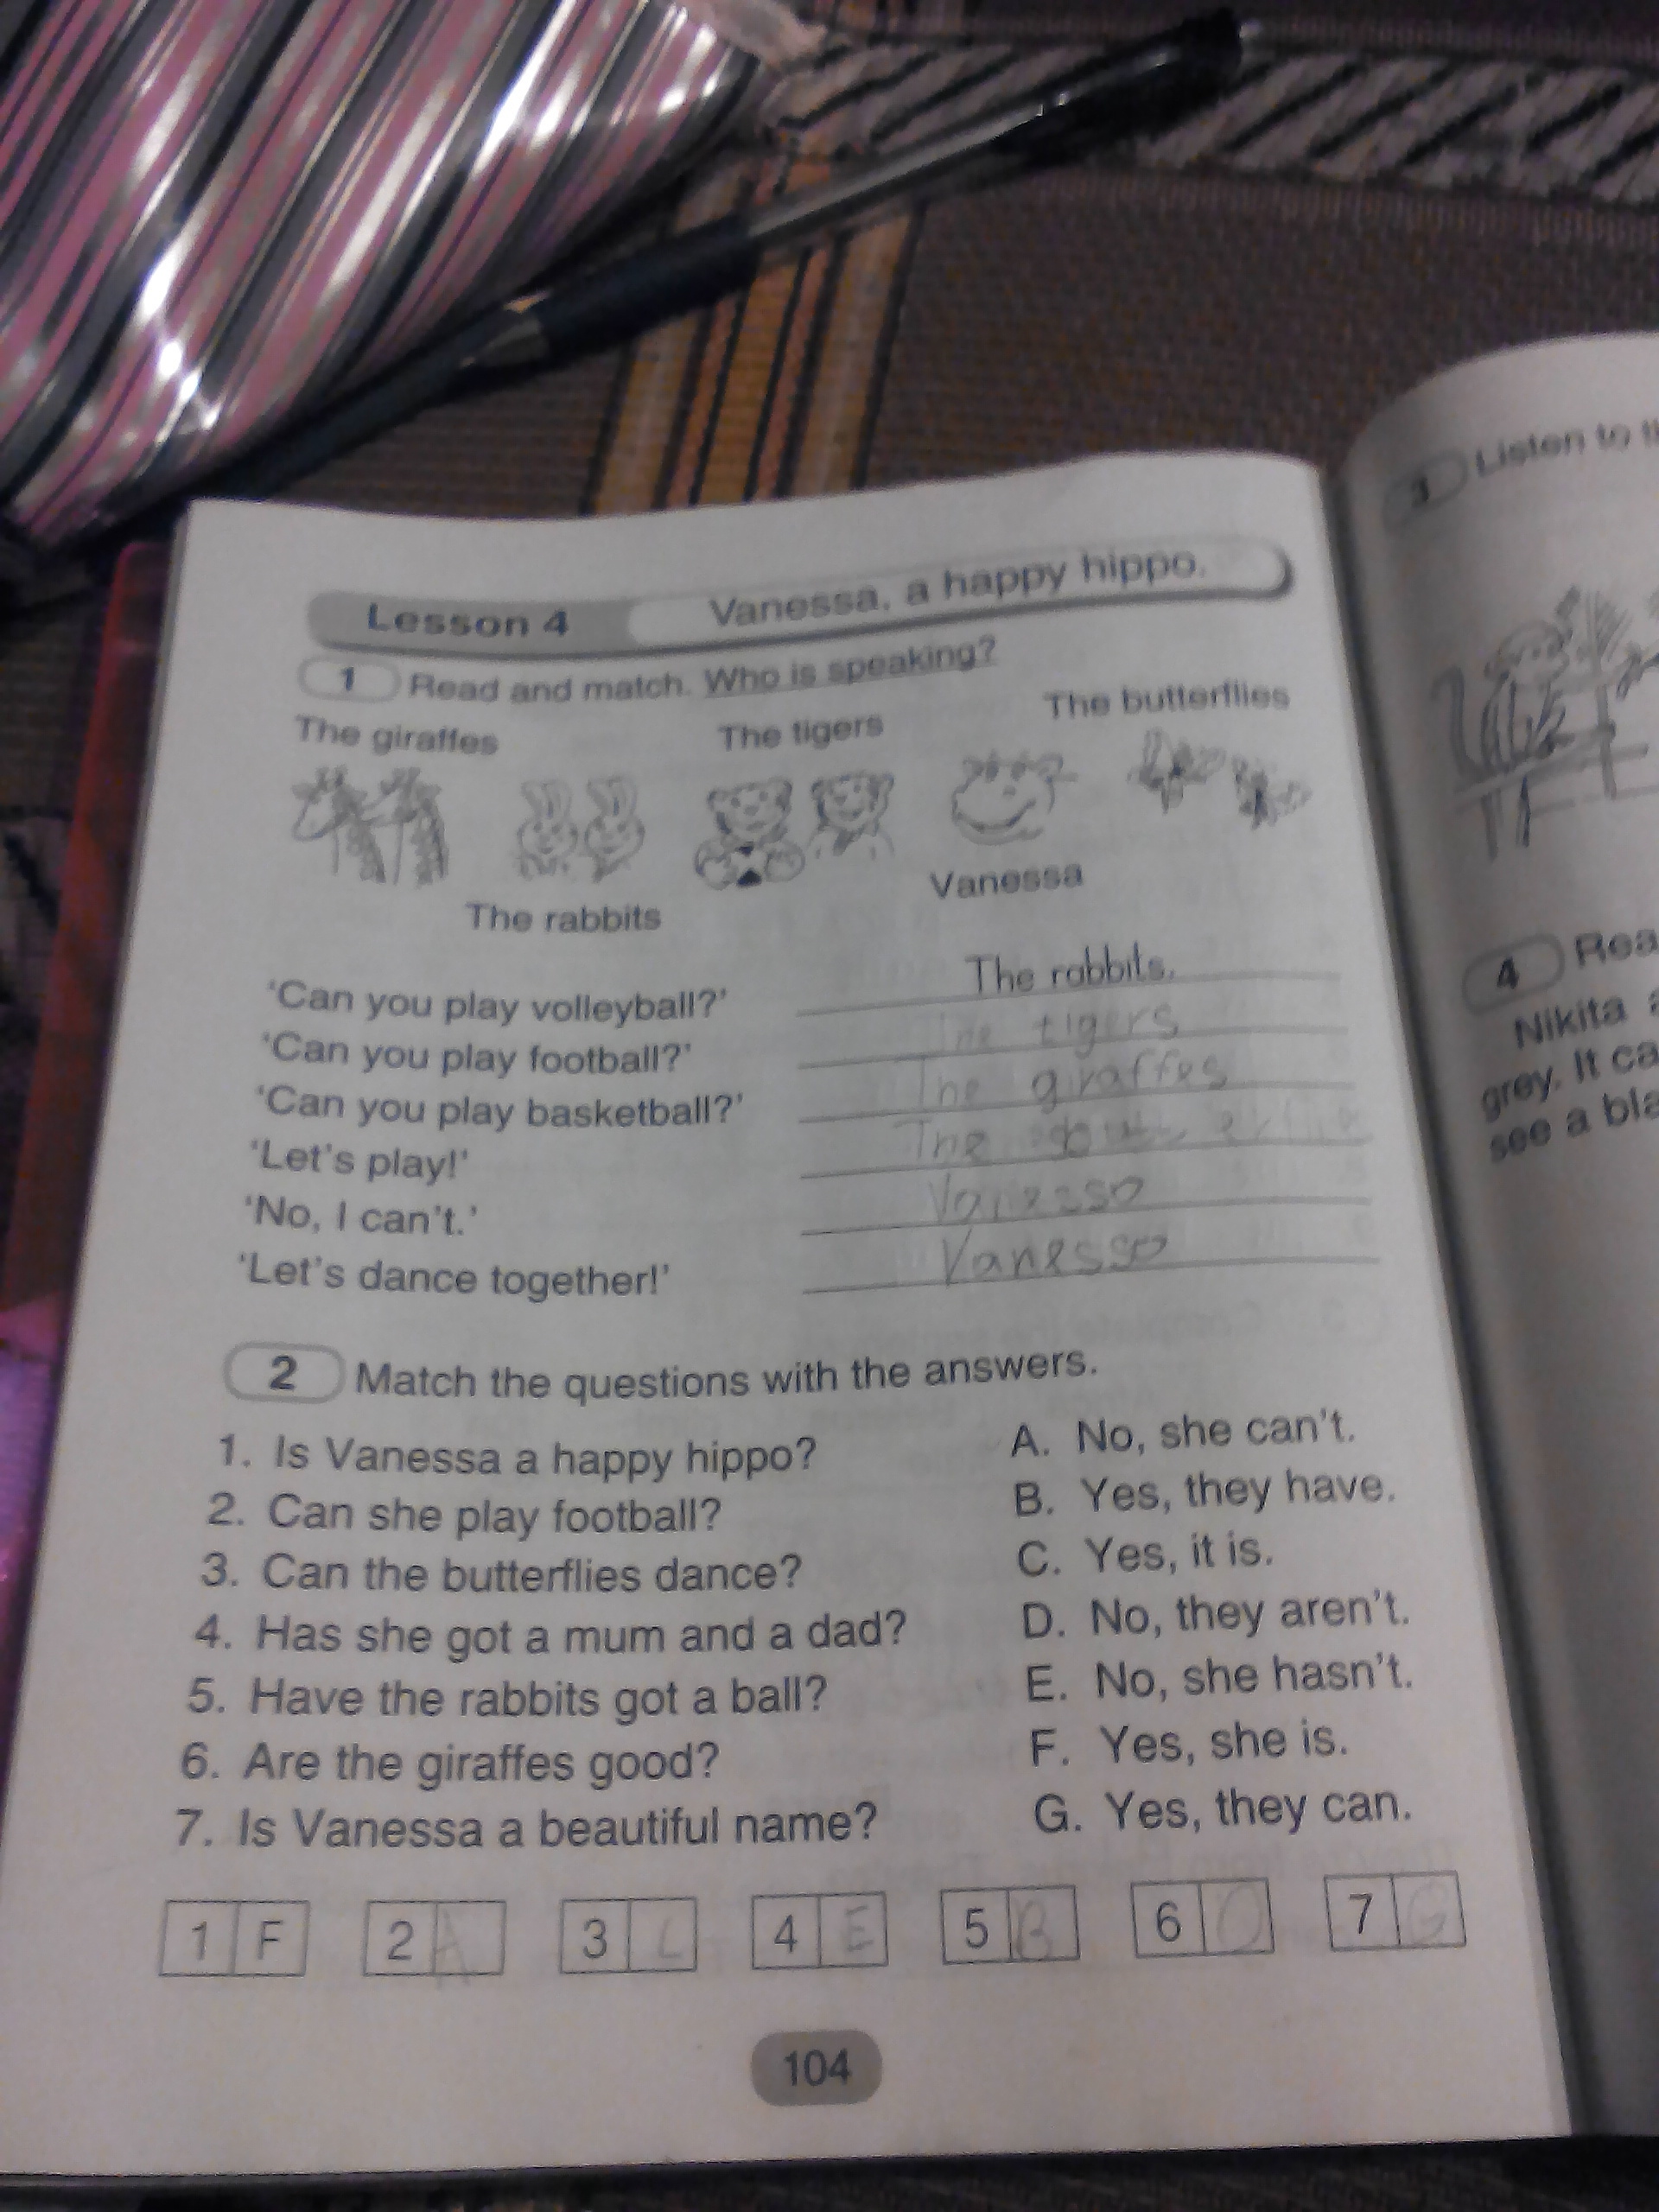 Lesson 4 Vanessa, a happy hippo.
1 Read and match. Who is speaking?
The giraffes The tigers The butterflies
The rabbits Vanessa
'Can you play volleyball?' The rabbits.
'Can you play football?' The tigers
'Can you play basketball?' The giraffes
'Let's play!' The
'No, I can't.' Vanessa
'Let's dance together!' Vanessa
2 Match the questions with the answers.
1. Is Vanessa a happy hippo? A. No, she can't.
2. Can she play football? B. Yes, they have.
3. Can the butterflies dance? C. Yes, it is.
4. Has she got a mum and a dad? D. No, they aren't.
5. Have the rabbits got a ball? E. No, she hasn't.
6. Are the giraffes good? F. Yes, she is.
7. Is Vanessa a beautiful name? G. Yes, they can.
1 F 2 A 3 4 E 5 B 6 7 G
104
3 Listen to
4
Nikita
grey. It
see a